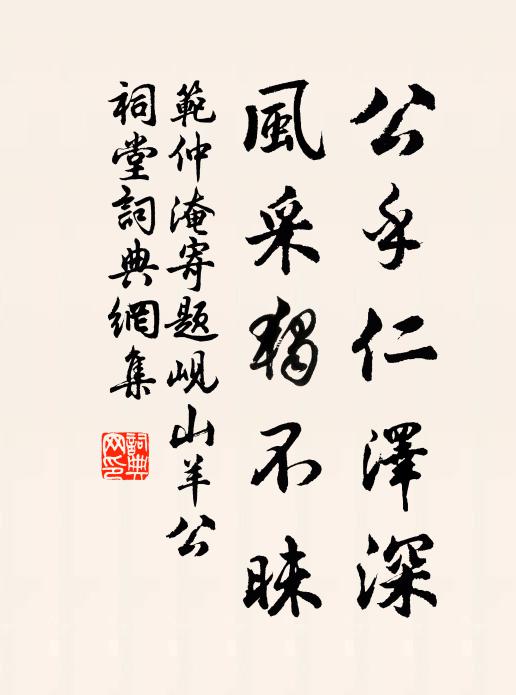 公乎仁澤深
風采獨不昧
範仲淹寄題峴山羊公
祠堂詞典網集
詞典網印